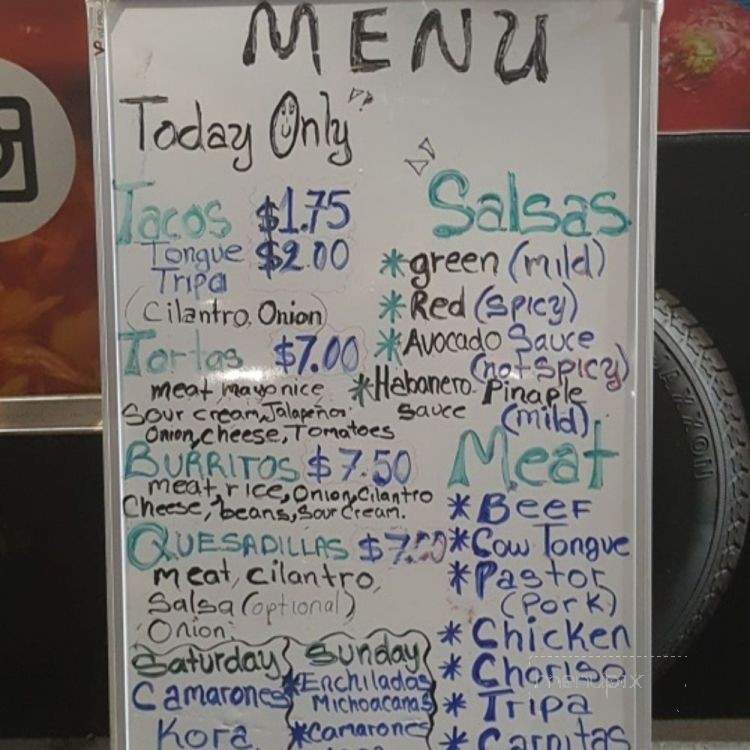 MENU
Today Only
Tacos $1.75
Tongue $2.00
Tripa
(Cilantro, Onion)
Tortas $7.00
meat, mayonice
Sour cream, Jalapeños
Onion, cheese, Tomatoes
BURRITOS $7.50
meat, rice, Onion, Cilantro
Cheese, beans, Sour Cream.
QUESADILLAS $7.50
meat, cilantro,
Salsa (optional)
Onion
Saturday
Camarones
Kora
Sunday
*Enchiladas
Michoacanas
*Camarones
Salsas
*green (mild)
*Red (Spicy)
*Avocado Sauce
(not Spicy)
*Habanero Pinaple
Sauce (mild)
Meat
*Beef
*Cow Tongue
*Pastor
(Pork)
*Chicken
*Choriso
*Tripa
*Carnitas
menupix